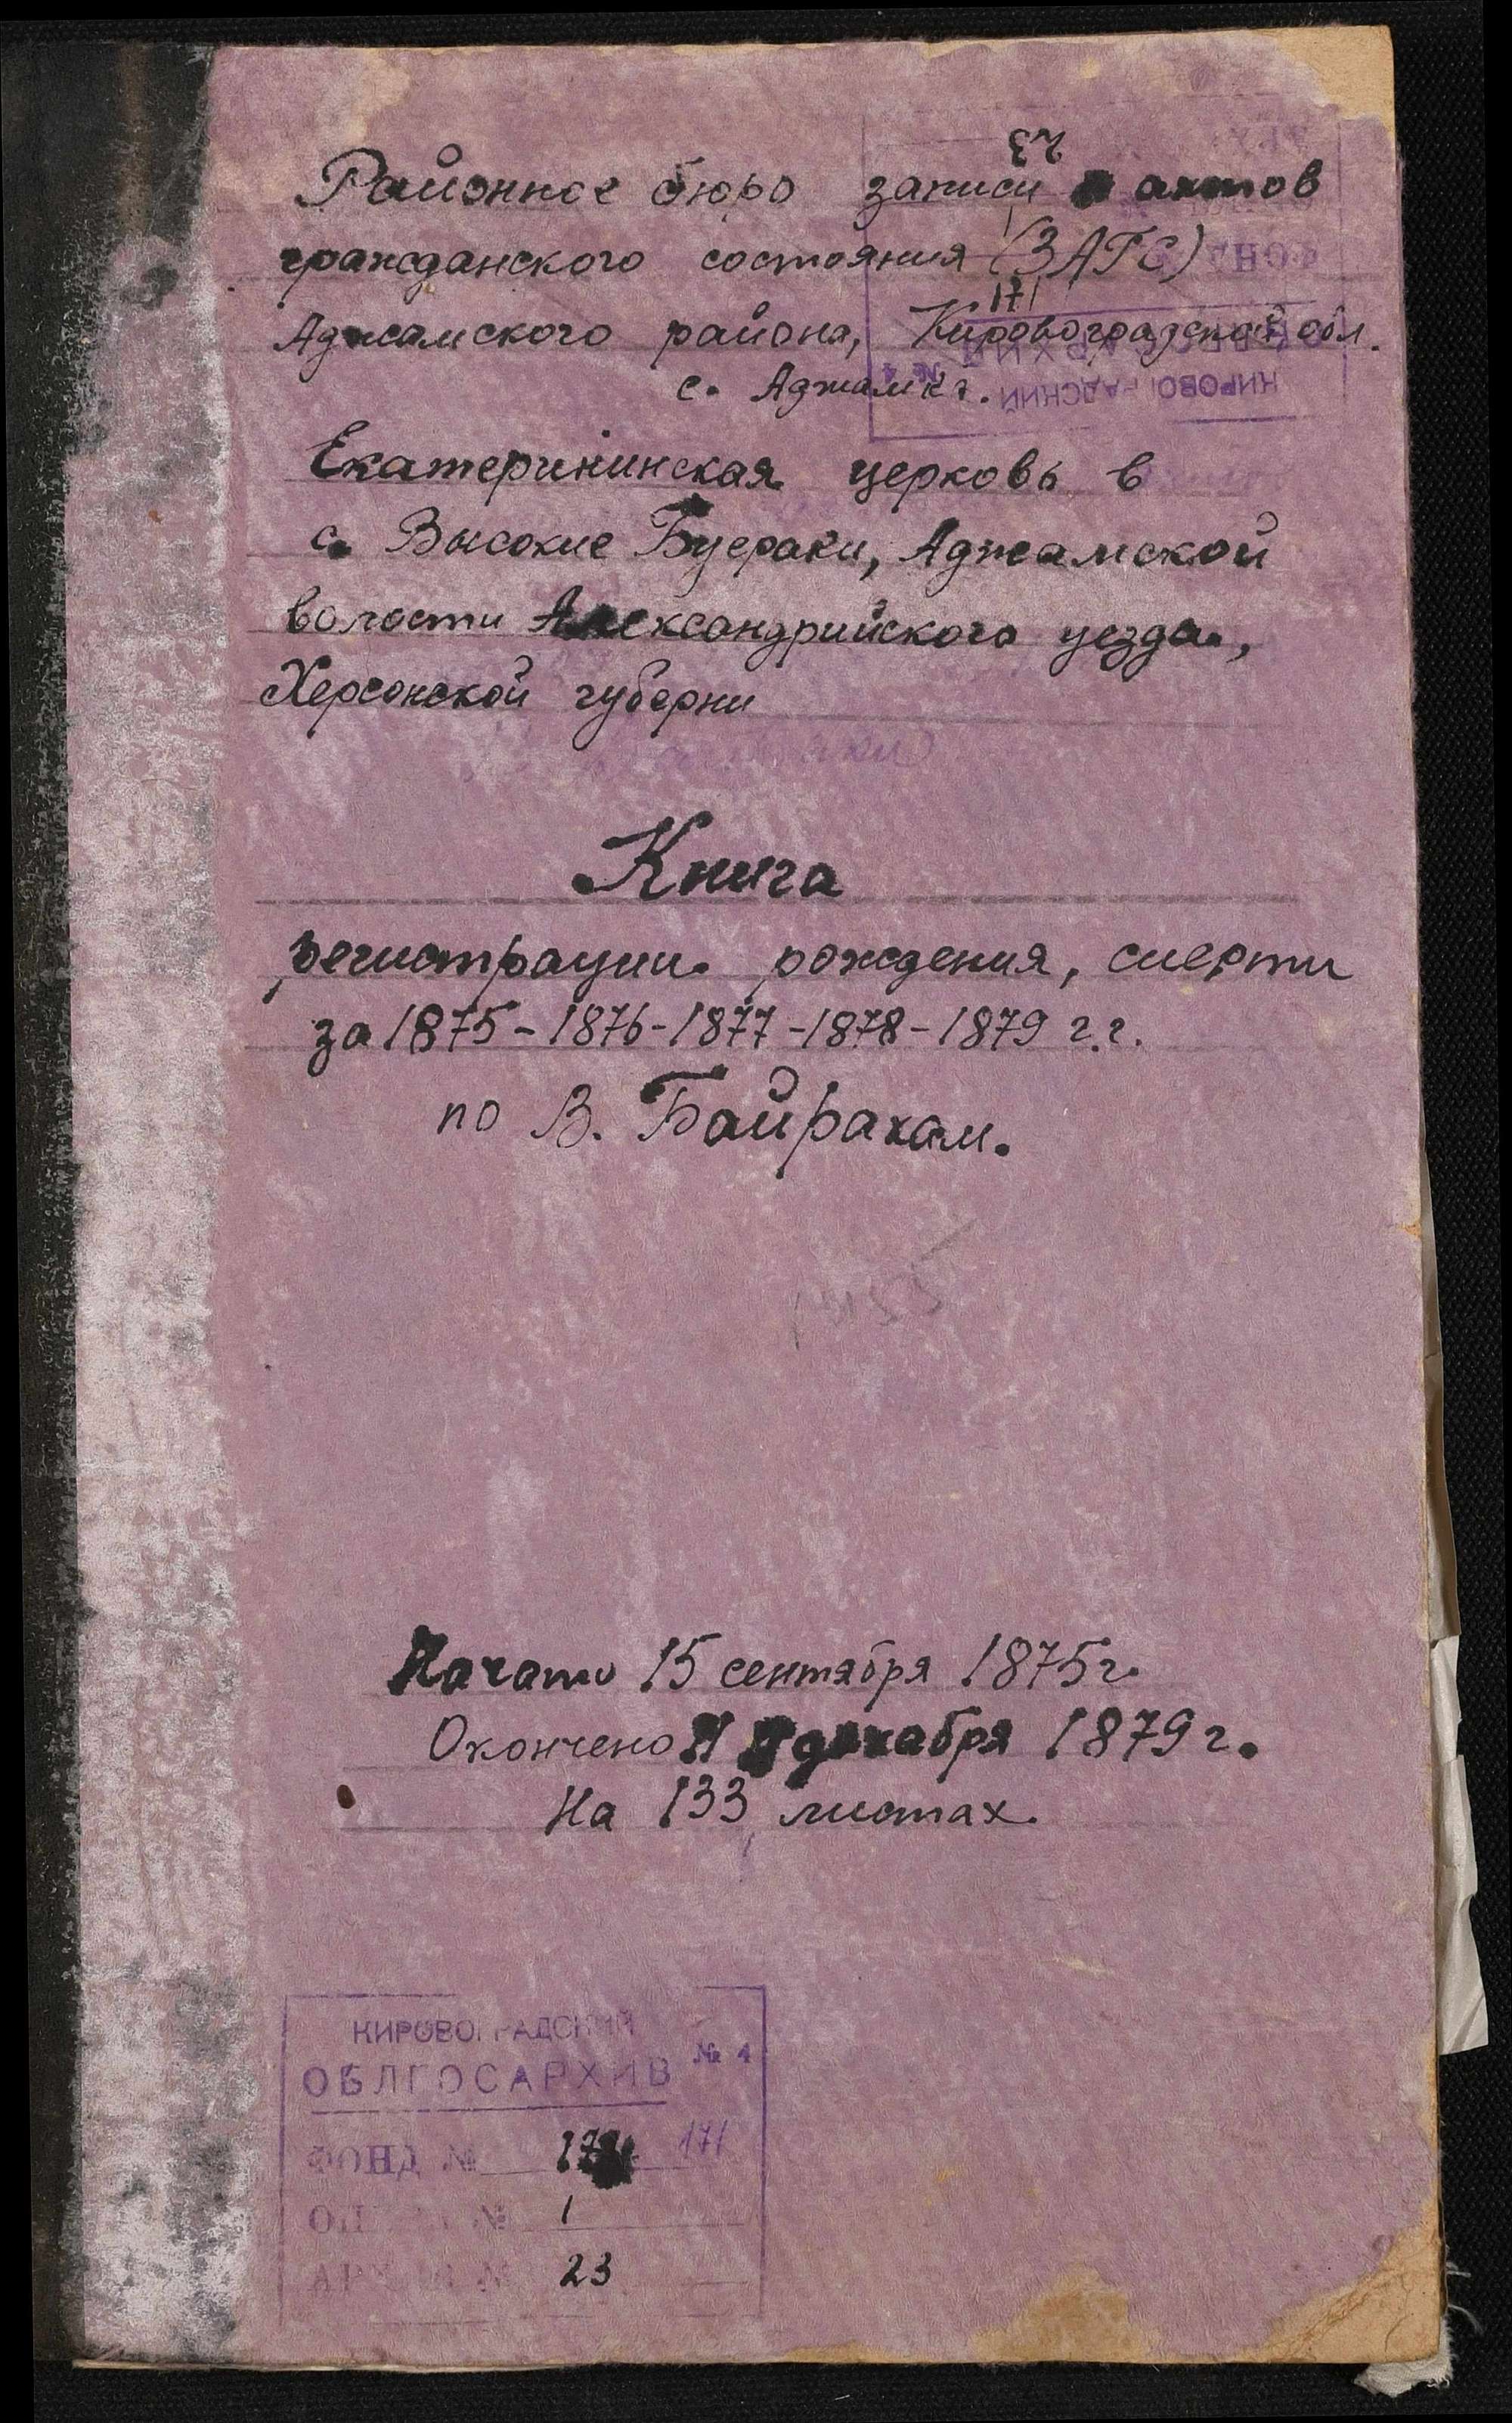 Районное бюро записи актов
гражданского состояния (ЗАГС)
Аджамского района, Кировоградской обл.
с. Аджамка.
Екатерининская церковь в
с. Высокие Буераки, Аджамской
волости Александрийского уезда,
Херсонской губерни
Книга
регистрации рождения, смерти
за 1875-1876-1877-1878-1879 г.г.
по В. Байракам.
Начато 15 сентября 1875 г.
Окончено декабря 1879 г.
На 133 листах.
КИРОВОГРАДСКИЙ
ОБЛГОСАРХИВ № 4
ФОНД № 171
№ 1
23
КИРОВОГРАДСКИЙ
№ 4
ФОНД
171
23